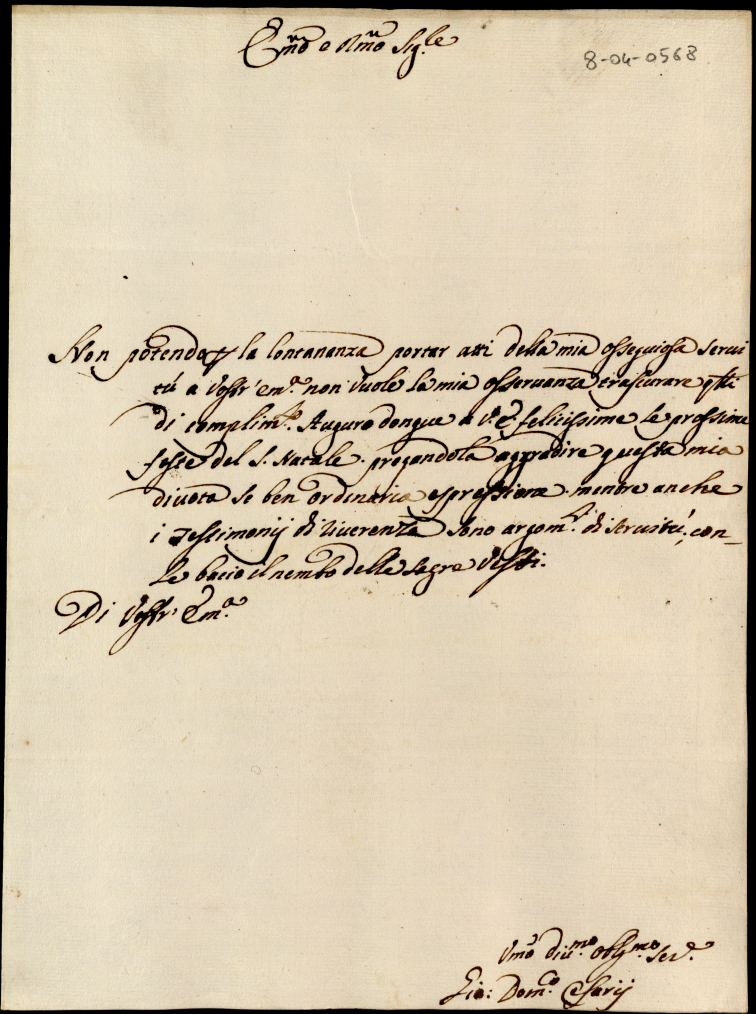 Em̃o e Rmo Sig.le
8-04-0568
Non potendo p la lontananza portar atti della mia ossequiosa servi
tù a Vostr' em.a non vuole la mia osservanza trascurare q.lli
di complim.ti. Auguro donque a V. E. felicissime le prossime
feste del S. Natale. pregandola aggradire questa mia
divota se ben ordinaria espressione. mentre anche
i Testimonij di riverenza sono argom.ti di servitù, con_
le bacio il nembo delle sagre Vesti.
Di Vostr' Em.a
Vmo diu.mo obl.mo ser.
Gio: Dom.co Cesarij